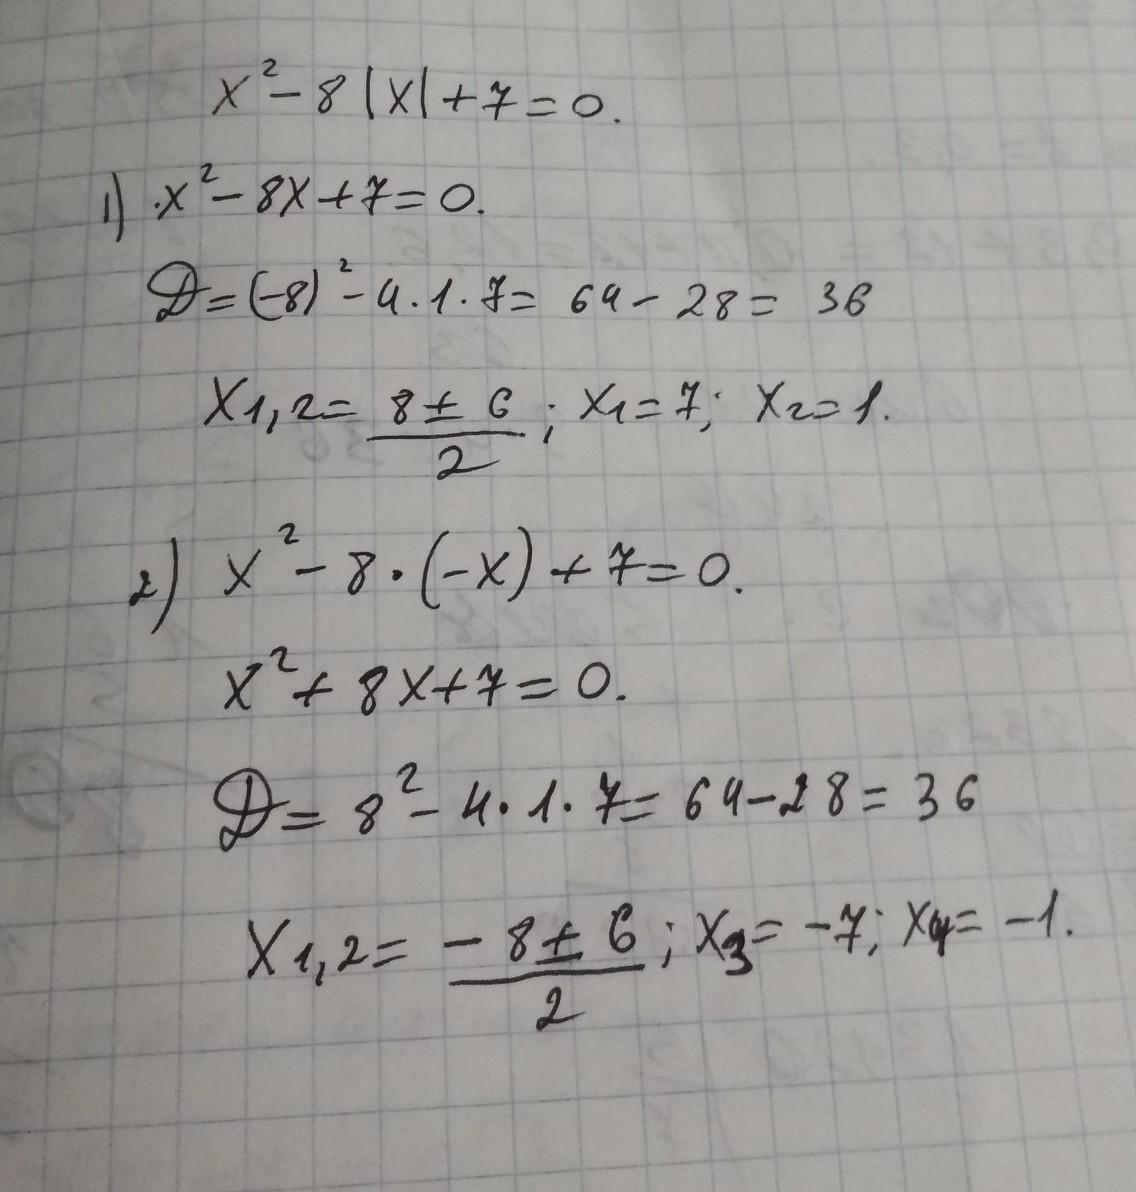 x² - 8|x| + 7 = 0.
1) x² - 8x + 7 = 0.
D = (-8)² - 4 · 1 · 7 = 64 - 28 = 36
x1,2 = (8 ± 6)/2 ; x1 = 7; x2 = 1.
2) x² - 8 · (-x) + 7 = 0.
x² + 8x + 7 = 0.
D = 8² - 4 · 1 · 7 = 64 - 28 = 36
x1,2 = (-8 ± 6)/2 ; x3 = -7; x4 = -1.